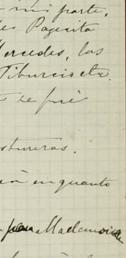 mi parte,
de Pagecito
Mercedes, las
Tiburcio etc.
se fué
costureras.
en quanto
para Mademoise